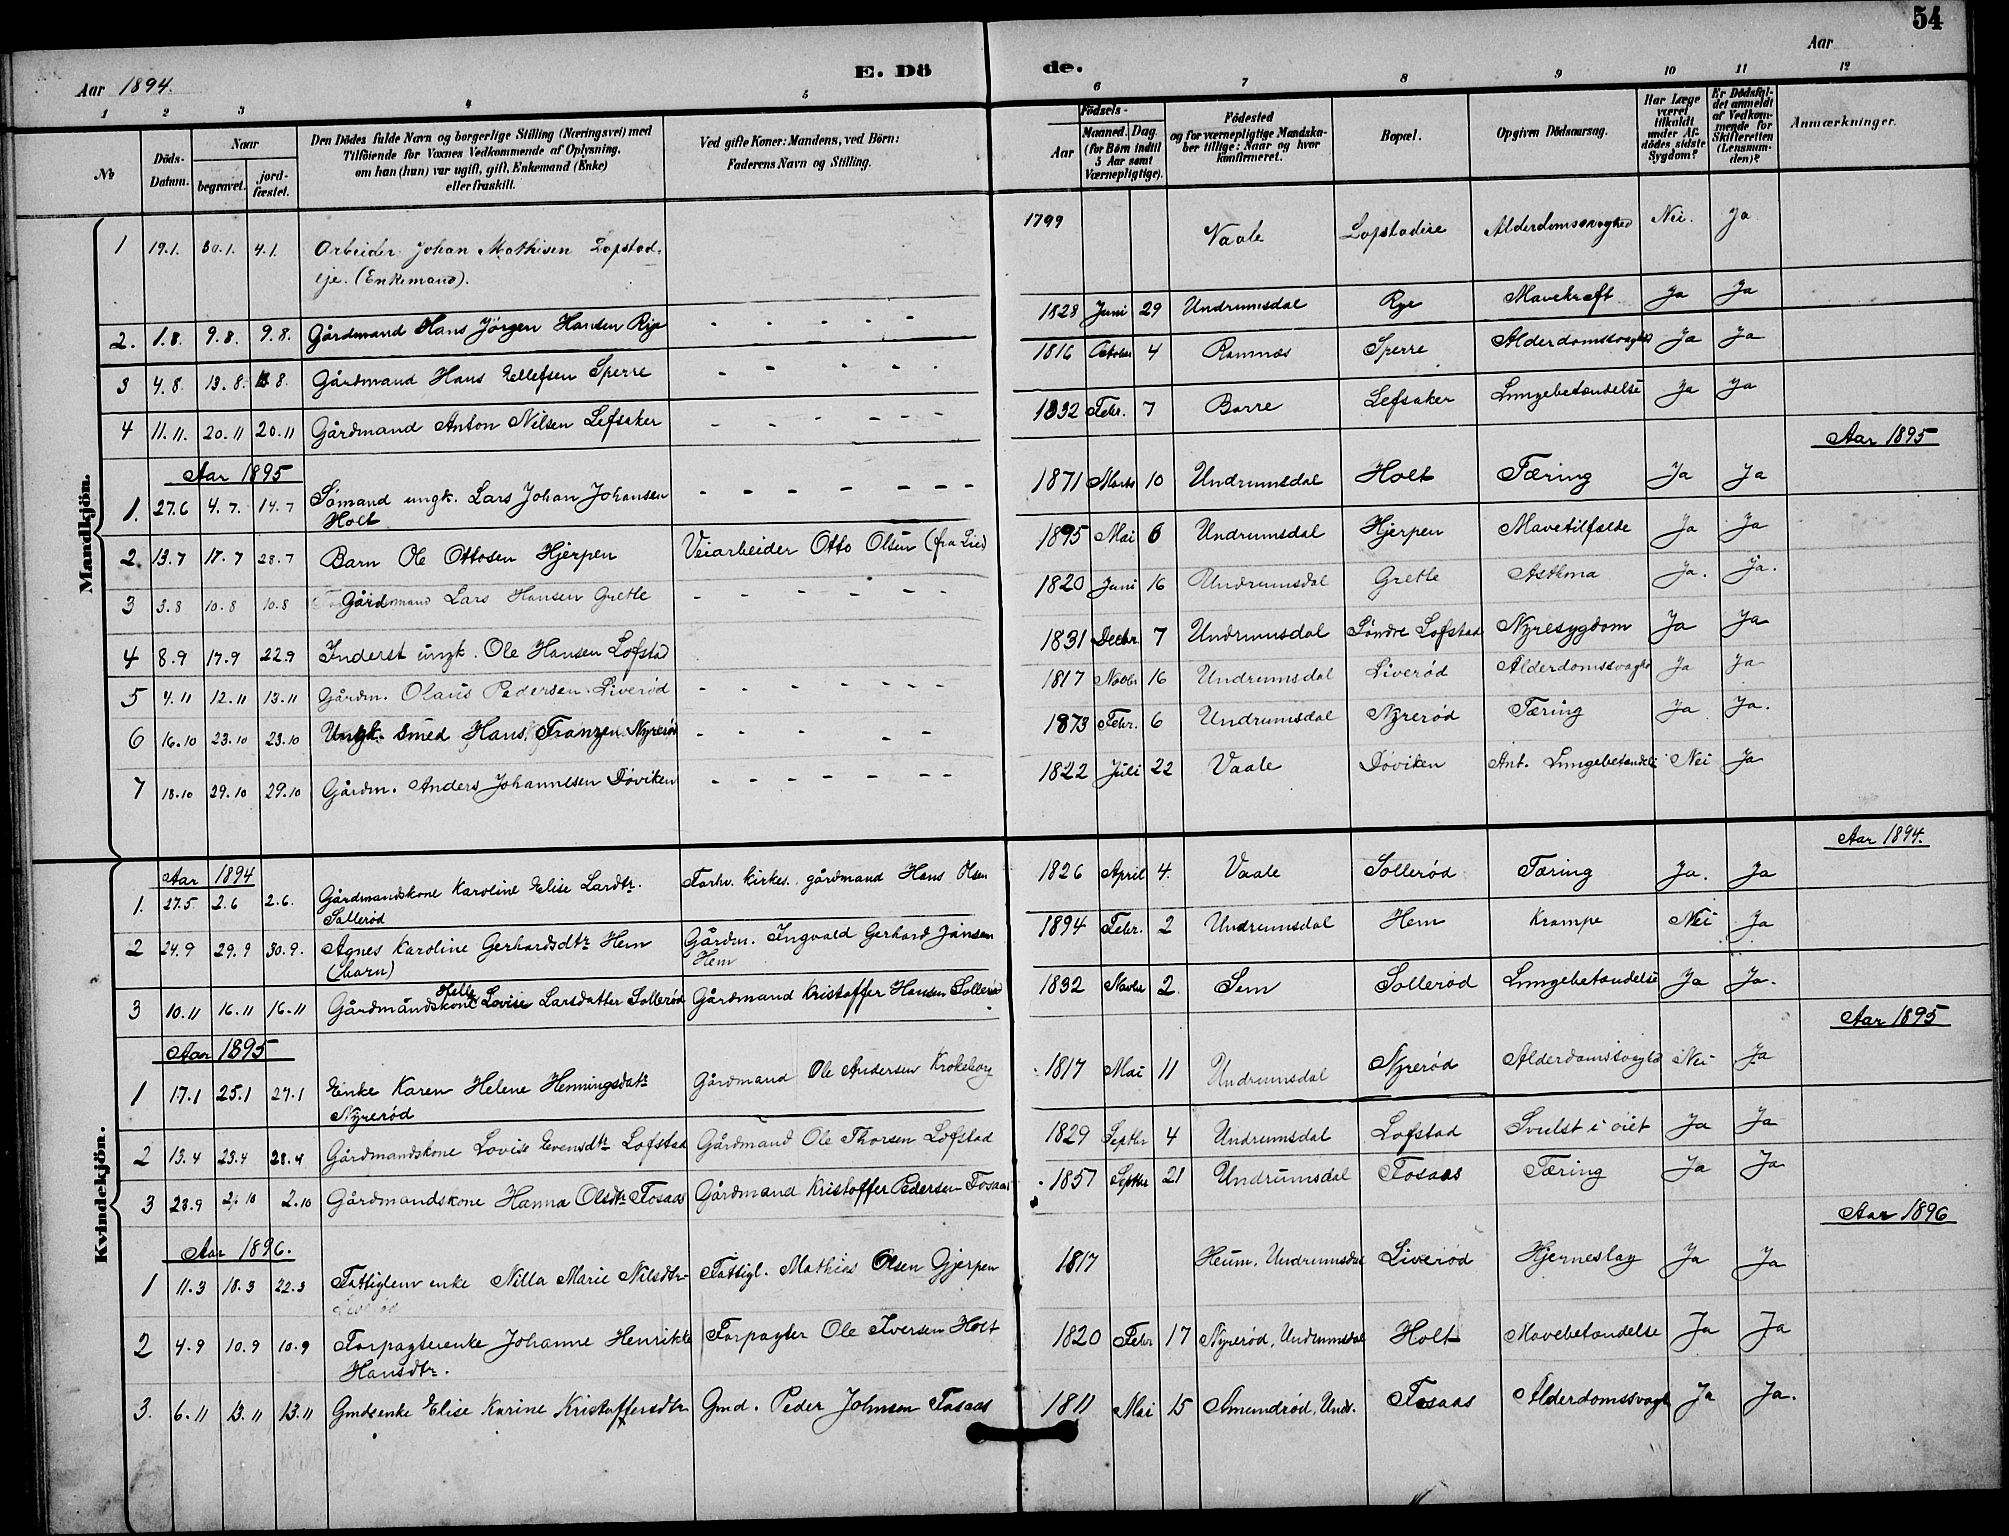 54
Aar 1894.
E. Dö de.
Aar
1 2 3 4 5 6 7 8 9 10 11 12
№
Döds-Datum.
Naar
begravet.
jord-fæstet.
Den Dödes fulde Navn og borgerlige Stilling (Næringsvei) med
Tilföiende for Voxnes Vedkommende af Oplysning,
om han (hun) var ugift, gift, Enkemand (Enke)
eller fraskilt.
Ved gifte Koner: Mandens, ved Börn:
Faderens Navn og Stilling.
Födsels-
Aar
Maaned. Dag.
(for Börn indtil
5 Aar samt
Værnepligtige).
Födested
og for værnepligtige Mandska-
ber tillige: Naar og hvor
konfirmeret.
Bopæl.
Opgiven Dödsaarsag.
Har Læge
været
tilkaldt
under Af-
dödes sidste
Sygdom?
Er Dödsfal-
det anmeldt
af Vedkom-
mende for
Skifteretten
(Lensman-
den)?
Anmærkninger.
Mandkjön.
1 19.1. 30.1. 4.1. Arbeider Johan Mathisen Lofstad- 1799 Vaale Lofstadeie Alderdomssvaghed Nei. Ja
eje. (Enkemand).
2. 1.8. 9.8. 9.8. Gårdmand Hans Jörgen Hansen Rye - - - - - 1828 Juni 29 Undrumsdal Rye Mavekræft Ja Ja
3 4.8. 13.8. 13.8. Gårdmand Hans Ellefsen Sperre - - - - - 1816 October 4 Ramnæs Sperre Alderdomssvaghed Ja Ja
4 11.11. 20.11 20.11 Gårdmand Anton Nilsen Lefsaker - - - - - 1832 Febr. 7 Borre Lefsaker Lungebetændelse Ja Ja
Aar 1895 Aar 1895
1. 27.6 4.7. 14.7 Sömand ungk. Lars Johan Johansen - - - - - - - 1871 Marts 10 Undrumsdal Holt Tæring Ja Ja
Holt
2. 13.7 17.7 28.7 Barn Ole Ottosen Hjerpen Veiarbeider Otto Olsen (fra Lier) 1895 Mai 6 Undrumsdal Hjerpen Mavetilfælde Ja Ja
3 3.8 10.8 10.8 Gårdmand Lars Hansen Gretle - - - - - - 1820 Juni 16 Undrumsdal Gretle Asthma Ja. Ja.
4 8.9 17.9 22.9 Inderst ungk. Ole Hansen Lofstad 1831 Decbr. 7 Undrumsdal Söndre Lofstad Nyresygdom Ja Ja
5 4.11 12.11 13.11 Gårdm. Olaus Pedersen Liveröd - - - - - - - 1817 Novbr 16 Undrumsdal Liveröd Alderdomssvaghed Ja Ja
6 16.10 23.10 23.10 Ungk. Smed Hans Franzen Nyreröd - - - - - 1873 Febr. 6 Undrumsdal Nyreröd Tæring Ja Ja.
7 18.10 29.10 29.10 Gårdm. Anders Johannesen Döviken - - - - - - - 1822 Juli 22 Vaale Döviken Ant. Lungebetændelse Nei Ja
Kvindekjön.
Aar 1894 Aar 1894.
1. 27.5 2.6 2.6. Gårdmandskone Karoline Elise Larsdtr. Forhv. Kirkes. gårdmand Hans Olsen 1826 April 4 Vaale Solleröd Tæring Ja. Ja
Solleröd
2 24.9 29.9 30.9. Agnes Karoline Gerhardsdtr Hem Gårdm. Ingvald Gerhard Jansen 1894 Febr. 2 Undrumsdal Hem Krampe Nei Ja
(barn) Hem
3 10.11 16.11 16.11 Gårdmandskone Helle Lovise Larsdatter Solleröd Gårdmand Kristoffer Hansen Solleröd 1832 Novbr 2. Sem Solleröd Lungebetændelse Ja Ja.
Aar 1895 Aar 1895
1 17.1 25.1 27.1 Enke Karen Helene Henningsdatr Gårdmand Ole Andersen Krokeborg 1817 Mai 11 Undrumsdal Nyreröd Alderdomssvaghd Nei Ja
Nyreröd
2 13.4 23.4 28.4 Gårdmandskone Lovise Evensdtr Lofstad Gårdmand Ole Thorsen Lofstad 1829 Septbr 4 Undrumsdal Lofstad Svulst i öiet Ja Ja
3 23.9 2.10 2.10 Gårdmandskone Hanna Olsdtr Fosaas Gårdmand Kristoffer Pedersen Fosaas 1857 Septbr 21 Undrumsdal Fosaas Tæring Ja Ja
Aar 1896. Aar 1896
1 11.3 18.3 22.3 Fattiglem enke Nilla Marie Nilsdtr Fattigl. Mathias Olsen Gjerpen 1817 Heum, Undrumsdal Liveröd Hjerneslag Ja Ja
Liveröd
2 4.9 10.9 10.9 Forpagterenke Johanne Henrikke Forpagter Ole Iversen Holt 1820 Febr 17 Nyreröd, Undrumsdal Holt Mavebetændelse Ja Ja
Hansdtr.
3. 6.11 13.11 13.11 Gmdsenke Elise Karine Kristoffersdtr Gmd. Peder Johnsen Fosaas 1811 Mai 15 Amundröd, Undr. Fosaas Alderdomssvagh Ja Ja.